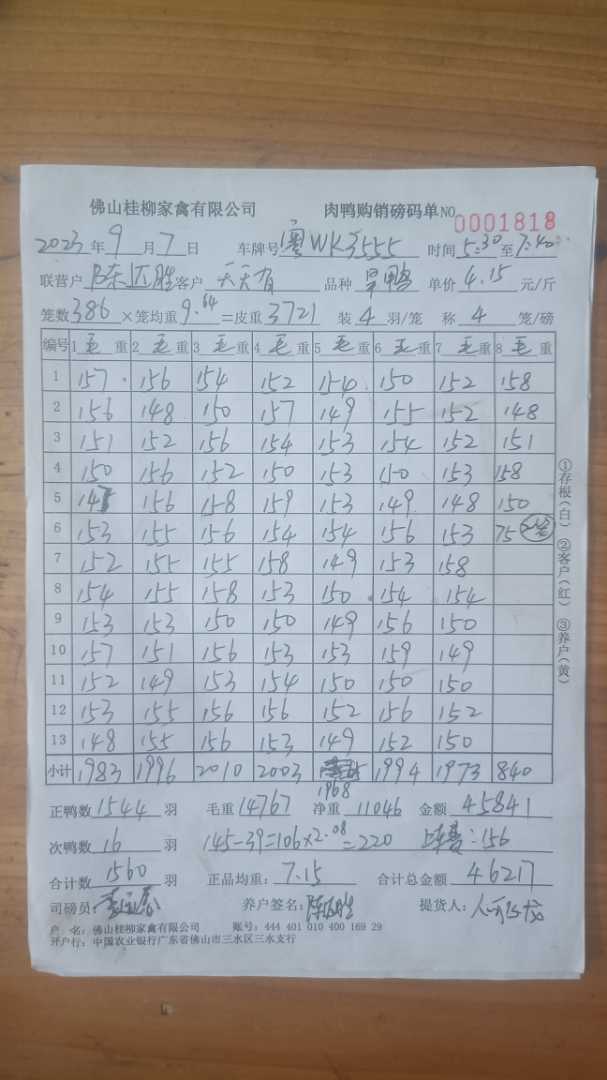 佛山桂柳家禽有限公司 肉鸭购销磅码单 NO 0001818
2023 年 9 月 7 日 车牌号 粤WK3555 时间 5:30 至 7:40
联营户 陈亚胜 客户 天天有 品种 旱鸭 单价 4.15 元/斤
笼数 386 ×笼均重 9.64 =皮重 3721 装 4 羽/笼 称 4 笼/磅
编号 1 毛 重 2 毛 重 3 毛 重 4 毛 重 5 毛 重 6 毛 重 7 毛 重 8 毛 重
1 157 156 154 152 154 150 152 158
2 156 148 150 157 149 155 152 148
3 151 152 156 154 153 154 152 151
4 150 156 152 150 153 150 153 158
5 147 156 158 159 153 149 148 150
6 153 155 156 154 154 156 153 75 2笼
7 152 155 155 158 149 153 158
8 154 155 158 153 150 154 154
9 153 153 150 150 149 156 150
10 157 151 156 153 153 159 149
11 152 149 153 154 150 150 150
12 153 155 156 156 152 156 152
13 148 155 156 153 149 152 150
小计 1983 1996 2010 2003 1968 1994 1973 840
正鸭数 1544 羽 毛重 14767 净重 11046 金额 45841
次鸭数 16 羽 145-39=106×2.08=220 :156
合计数 1560 羽 正品均重: 7.15 合计总金额 46217
司磅员: 养户签名: 提货人:
户 名: 佛山桂柳家禽有限公司 账号: 444 401 010 400 169 29
开户行: 中国农业银行广东省佛山市三水区三水支行
①存根(白) ②客户(红) ③养户(黄)